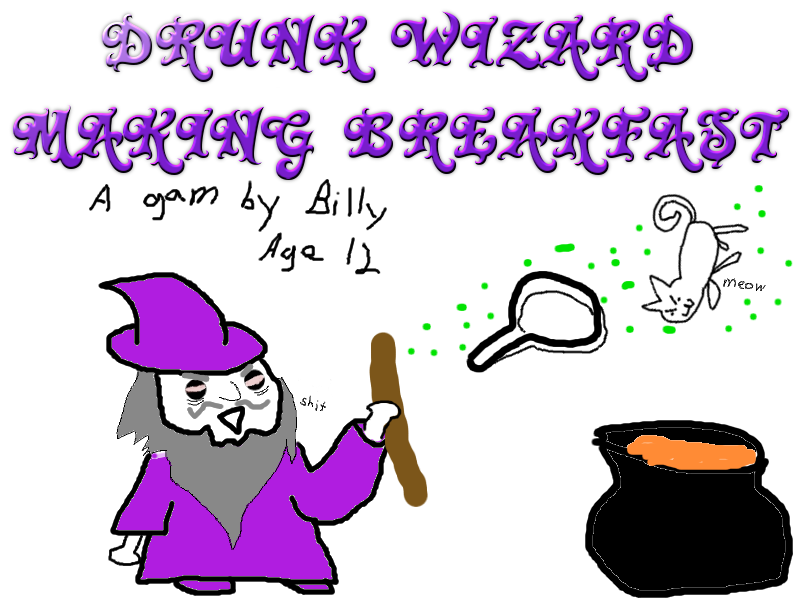 DRUNK WIZARD
MAKING BREAKFAST
A gam by Billy
Age 12
meow
shit